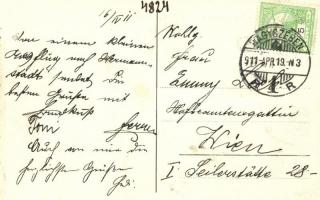 16/IV 11
4824
Von einem kleinen
Ausflug nach Hermann-
stadt sendet Dir
besten Grüße mit
Handkuß
Tom
Auch von mir die
herzlichsten Grüße
Wohlg.
Frau
Emmy
Hofbeamtensgattin
Wien
I. Seilerstätte 28-
NAGYSZEBEN
911 APR 19. N3